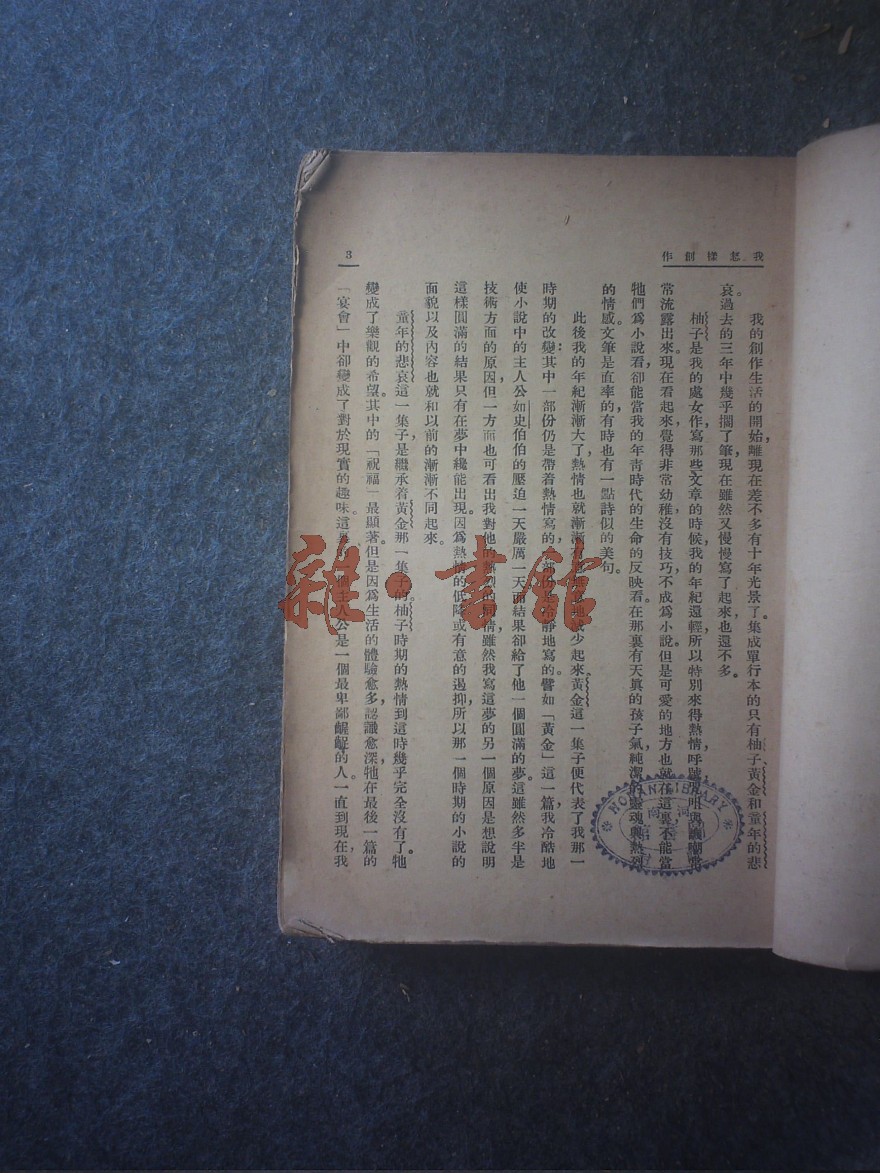 我怎樣創作
3
我的創作生活的開始,離現在差不多有十年光景了。集成單行本的只有柚子,黃金和童年的悲
哀。過去的三年中幾乎擱了筆,現在雖然又慢慢寫了起來,也還不多。
柚子是我的處女作,寫那些文章的時候,我的年紀還輕,所以特別來得熱情,呼號
常流露出來。現在看起來,覺得非常幼稚,沒有技巧,不成爲小說。但是可愛的地方也就在這裏。不能當
牠們爲小說看,卻能當我的年青時代的生命的反映看。在那裏有天眞的孩子氣,純潔的靈魂與熱烈
的情感。文筆是直率的,有時也有一點詩似的美句。
此後我的年紀漸漸大了,熱情也就漸漸減少起來,黃金這一集子便代表了我那一
時期的改變:其中一部份仍是帶着熱情寫的,一部份是冷靜地寫的。譬如「黃金」這一篇,我冷酷地
使小說中的主人公如史伯伯的壓迫一天嚴厲一天,而結果卻給了他一個圓滿的夢。這雖然多半是
技術方面的原因,但一方面也可看出我對他的熱烈的同情,雖然我寫這夢的另一個原因是想說明
這樣圓滿的結果只有在夢中纔能出現。因爲熱情的低降或有意的遏抑,所以那一個時期的小說的
面貌以及內容也就和以前的漸漸不同起來。
童年的悲哀這一集子,是繼承着黃金那一集子的,柚子時期的熱情到這時幾乎完全沒有了。牠
變成了樂觀的希望。其中的「祝福」最顯著。但是因爲生活的體驗愈多,認識愈深,牠在最後一篇的
「宴會」中卻變成了對於現實的趣味。這裏的一個主人公是一個最卑鄙齷齪的人。一直到現在,我
HONAN LIBRARY
雜·書館